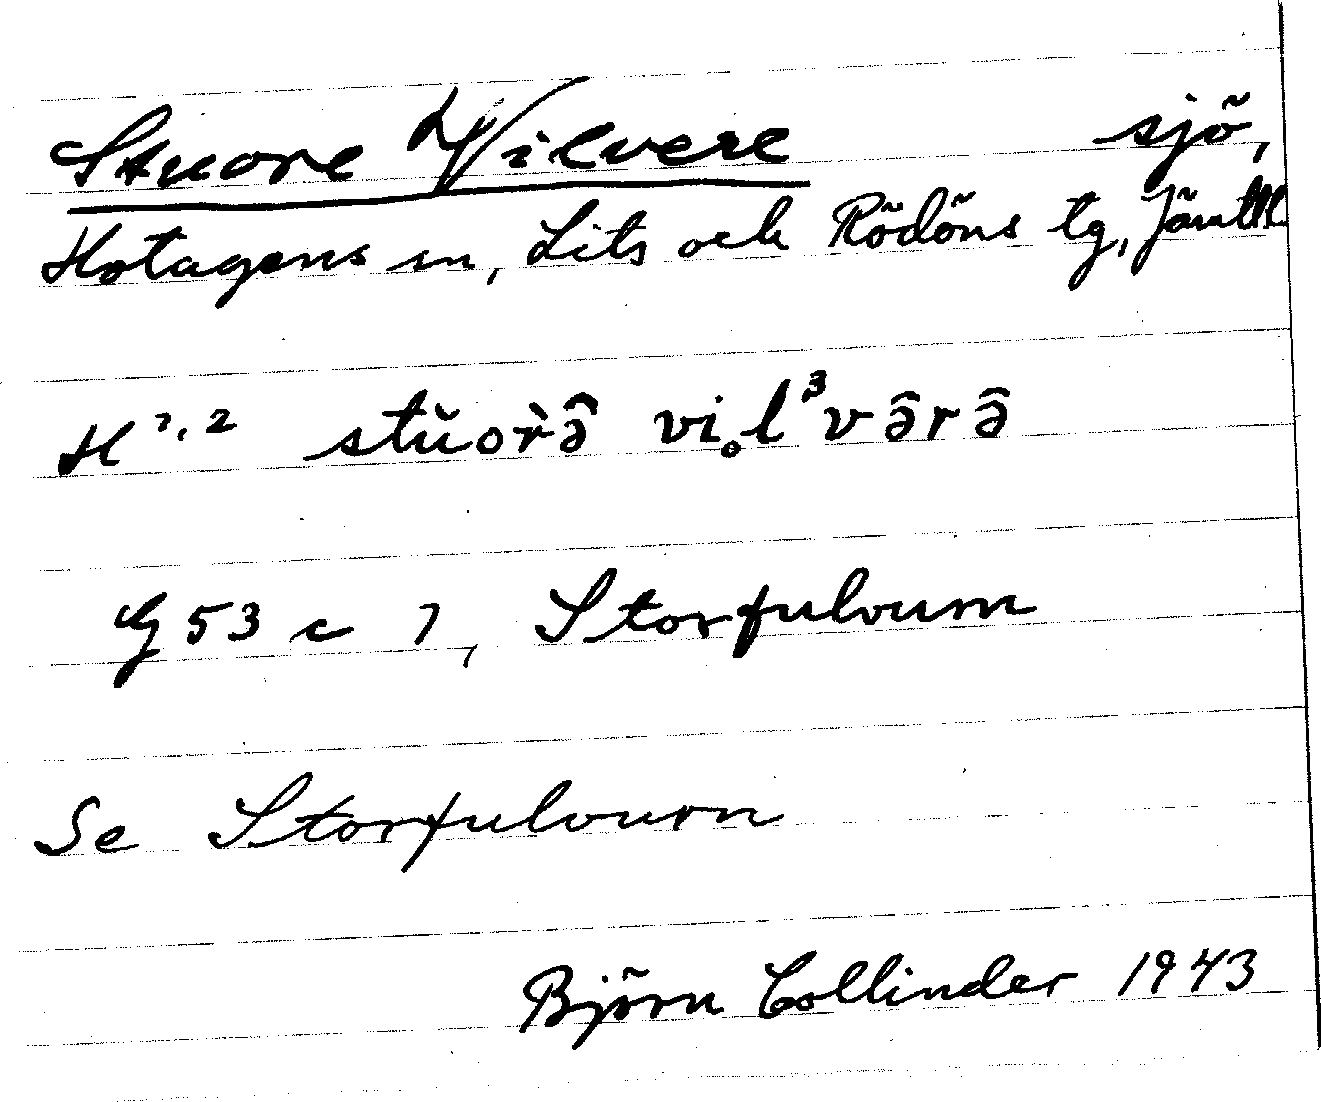 Stuore Vilvere sjö,
Hotagens sn, Lits och Rödöns tg, Jämtl
H 1, 2 stŭorə̂ vi̥l³və̂rə̂
G 53 c 7, Storfulvurn
Se Storfulvurn
Björn Collinder 1943